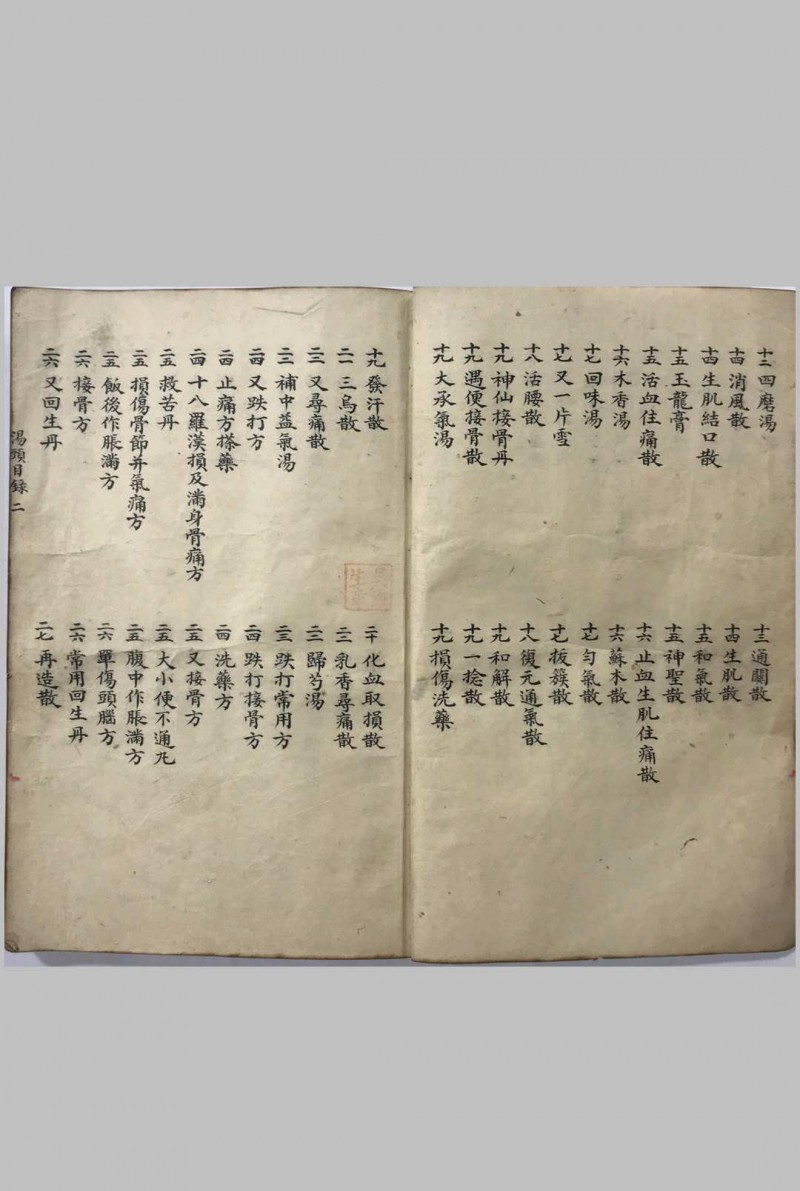 十二 四磨湯
十三 通關散
十四 消風散
十四 生肌散
十四 生肌結口散
十五 和氣散
十五 玉龍膏
十五 神聖散
十五 活血住痛散
十六 止血生肌住痛散
十六 木香湯
十六 蘇木散
十七 回味湯
十七 勻氣散
十七 又一片雪
十七 拔簇散
十八 活腰散
十八 復元通氣散
十九 神仙接骨丹
十九 和解散
十九 遇便接骨散
十九 一捻散
十九 大承氣湯
十九 損傷洗藥
十九 發汗散
二十 化血取損散
二一 三烏散
二二 乳香尋痛散
二二 又尋痛散
二二 歸芍湯
二二 補中益氣湯
二三 跌打常用方
二四 又跌打方
二四 跌打接骨方
二四 止痛方搽藥
二四 洗藥方
二四 十八羅漢損及滿身骨痛方
二五 又接骨方
二五 救苦丹
二五 大小便不通九
二五 損傷骨節并氣痛方
二五 腹中作脹滿方
二五 飯後作脹滿方
二六 單傷頭腦方
二六 接骨方
二六 常用回生丹
二六 又回生丹
二七 再造散
湯頭目錄 二